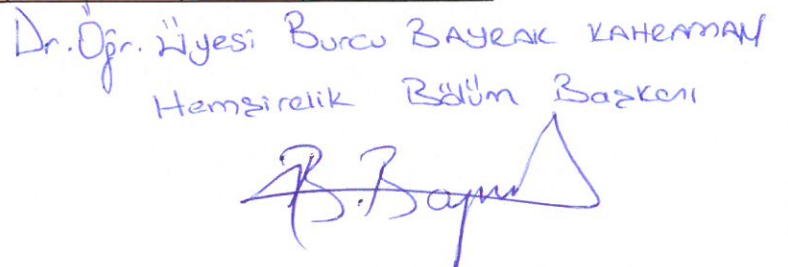 Dr. Öğr. Üyesi Burcu BAYRAK KAHRAMAN
Hemşirelik Bölüm Başkanı
B. Bayrak